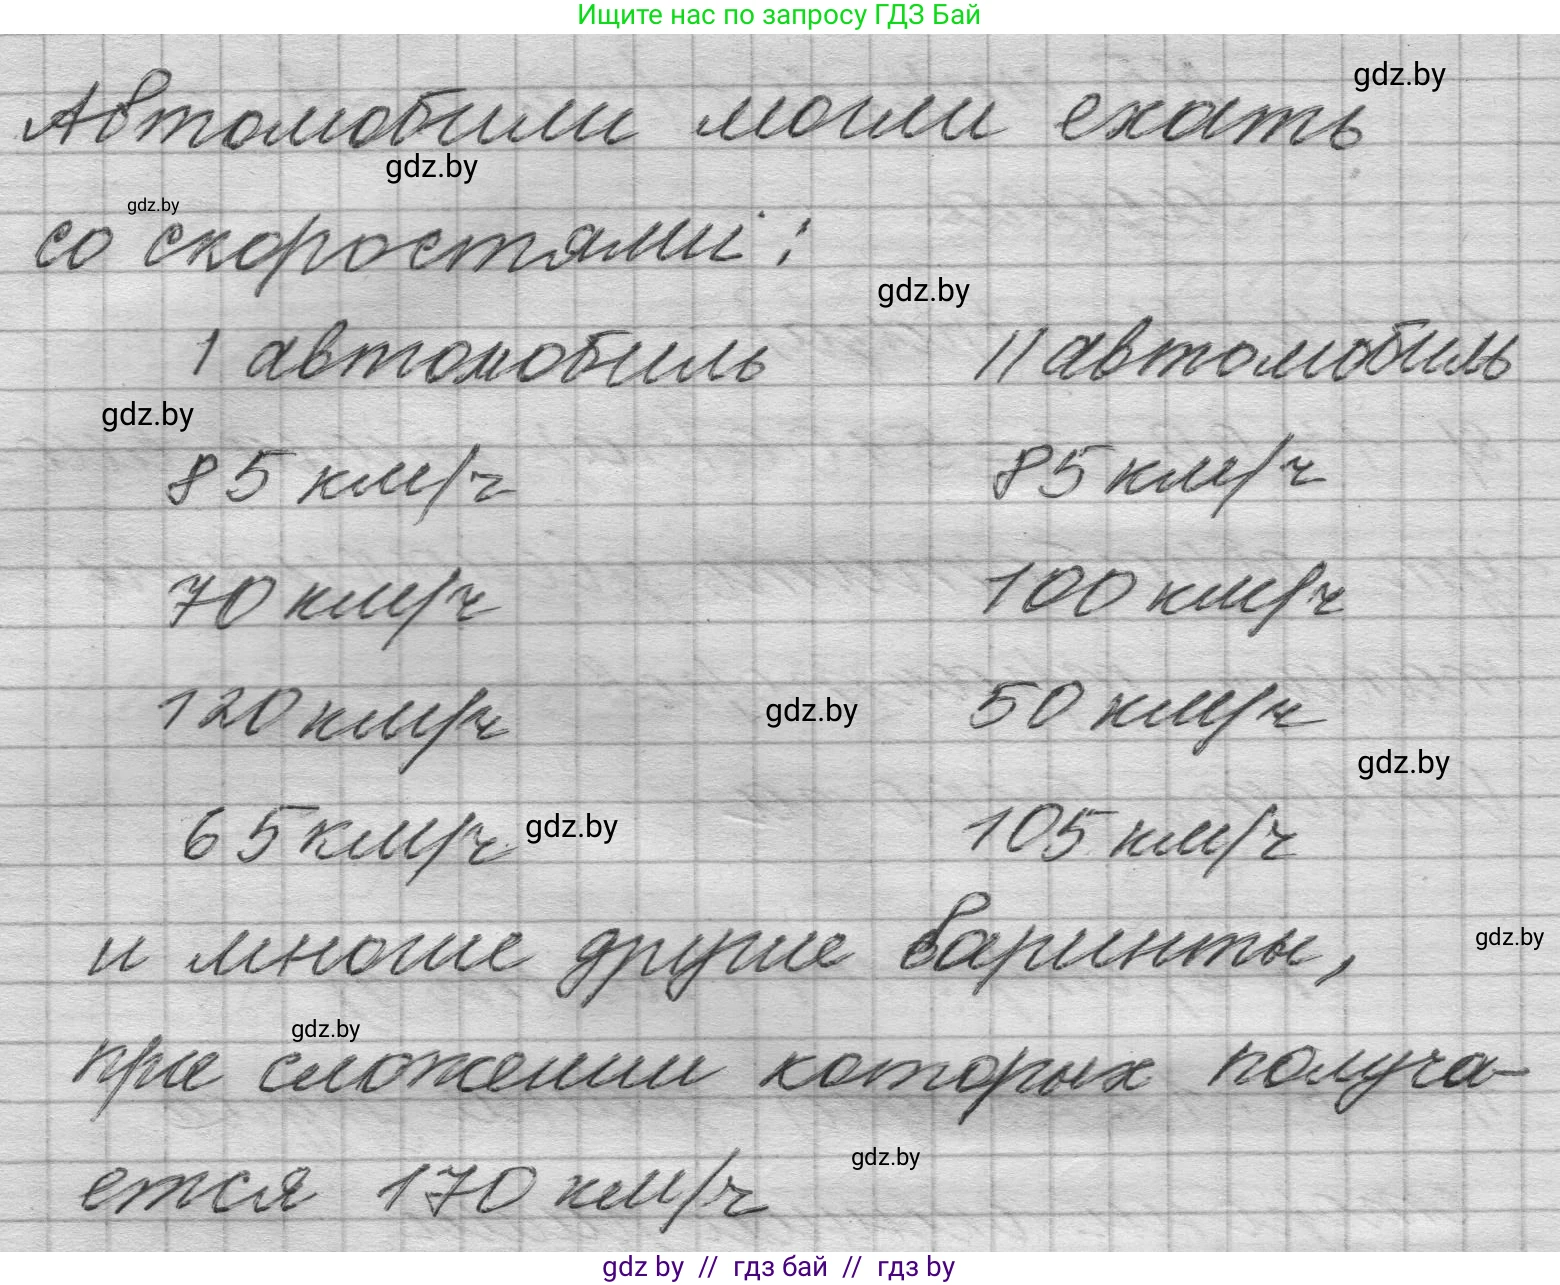 Ищите нас по запросу ГДЗ Бай
gdz.by
Автомобили могли ехать
gdz.by
gdz.by
со скоростями:
gdz.by
1 автомобиль 11 автомобиль
gdz.by
85 км/ч 85 км/ч
70 км/ч 100 км/ч
120 км/ч 50 км/ч
gdz.by
gdz.by
65 км/ч 105 км/ч
gdz.by
и многие другие варинты,
gdz.by
gdz.by
при сложении которых получа-
ется 170 км/ч
gdz.by
gdz by // гдз бай // гдз by